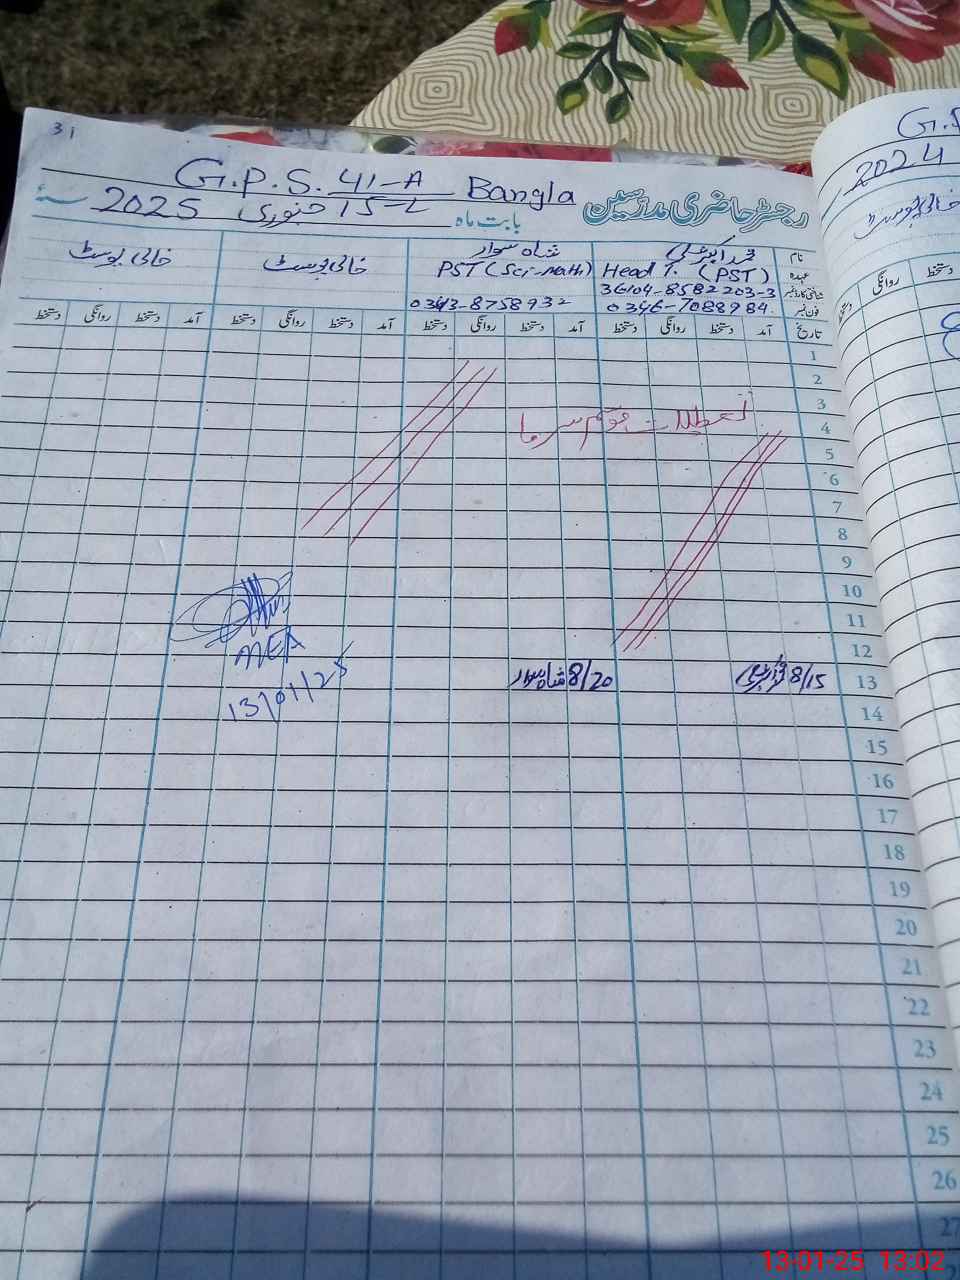 31
G.P.S. 41-A Bangla
15-L
رجسٹر حاضری مدرسین
بابت ماہ جنوری 2025 سنہ
نام محمد اکبر علی شاہ سوار خالی پوسٹ خالی پوسٹ
عہدہ Head T. (PST) PST (Sci-Math)
شناختی کارڈ نمبر 36104-8582203-3
فون نمبر 0346-7088984 0343-8758932
تاریخ آمد دستخط روانگی دستخط آمد دستخط روانگی دستخط آمد دستخط روانگی دستخط آمد دستخط روانگی دستخط
1
2
3
تعطیلات موسم سرما
4
5
6
7
8
9
10
11
12
13 8/15 8/20 شاہ سوار
MEA
13/01/25
14
15
16
17
18
19
20
21
22
23
24
25
26
27
G.P
2024
خالی پوسٹ
دستخط روانگی دستخط
13-01-25 13:02